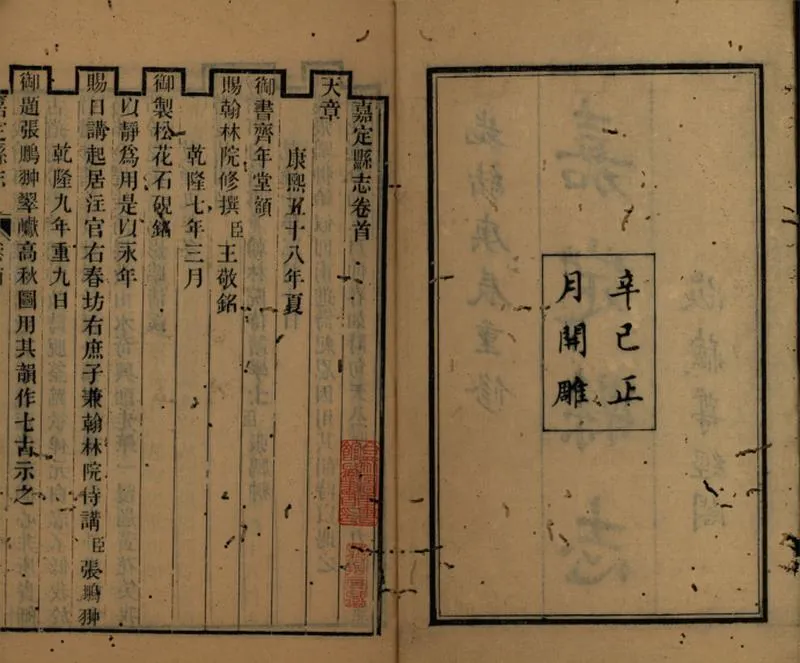 辛巳正
月開雕
嘉定縣志卷首
天章
康熙五十八年夏
御書齊年堂額
賜翰林院修撰臣王敬銘
乾隆七年三月
御製松花石硯銘
以靜爲用是以永年
賜日講起居注官右春坊右庶子兼翰林院侍講臣張鵬翀
乾隆九年重九日
御題張鵬翀翠巘高秋圖用其韻作七古示之
嘉定縣志